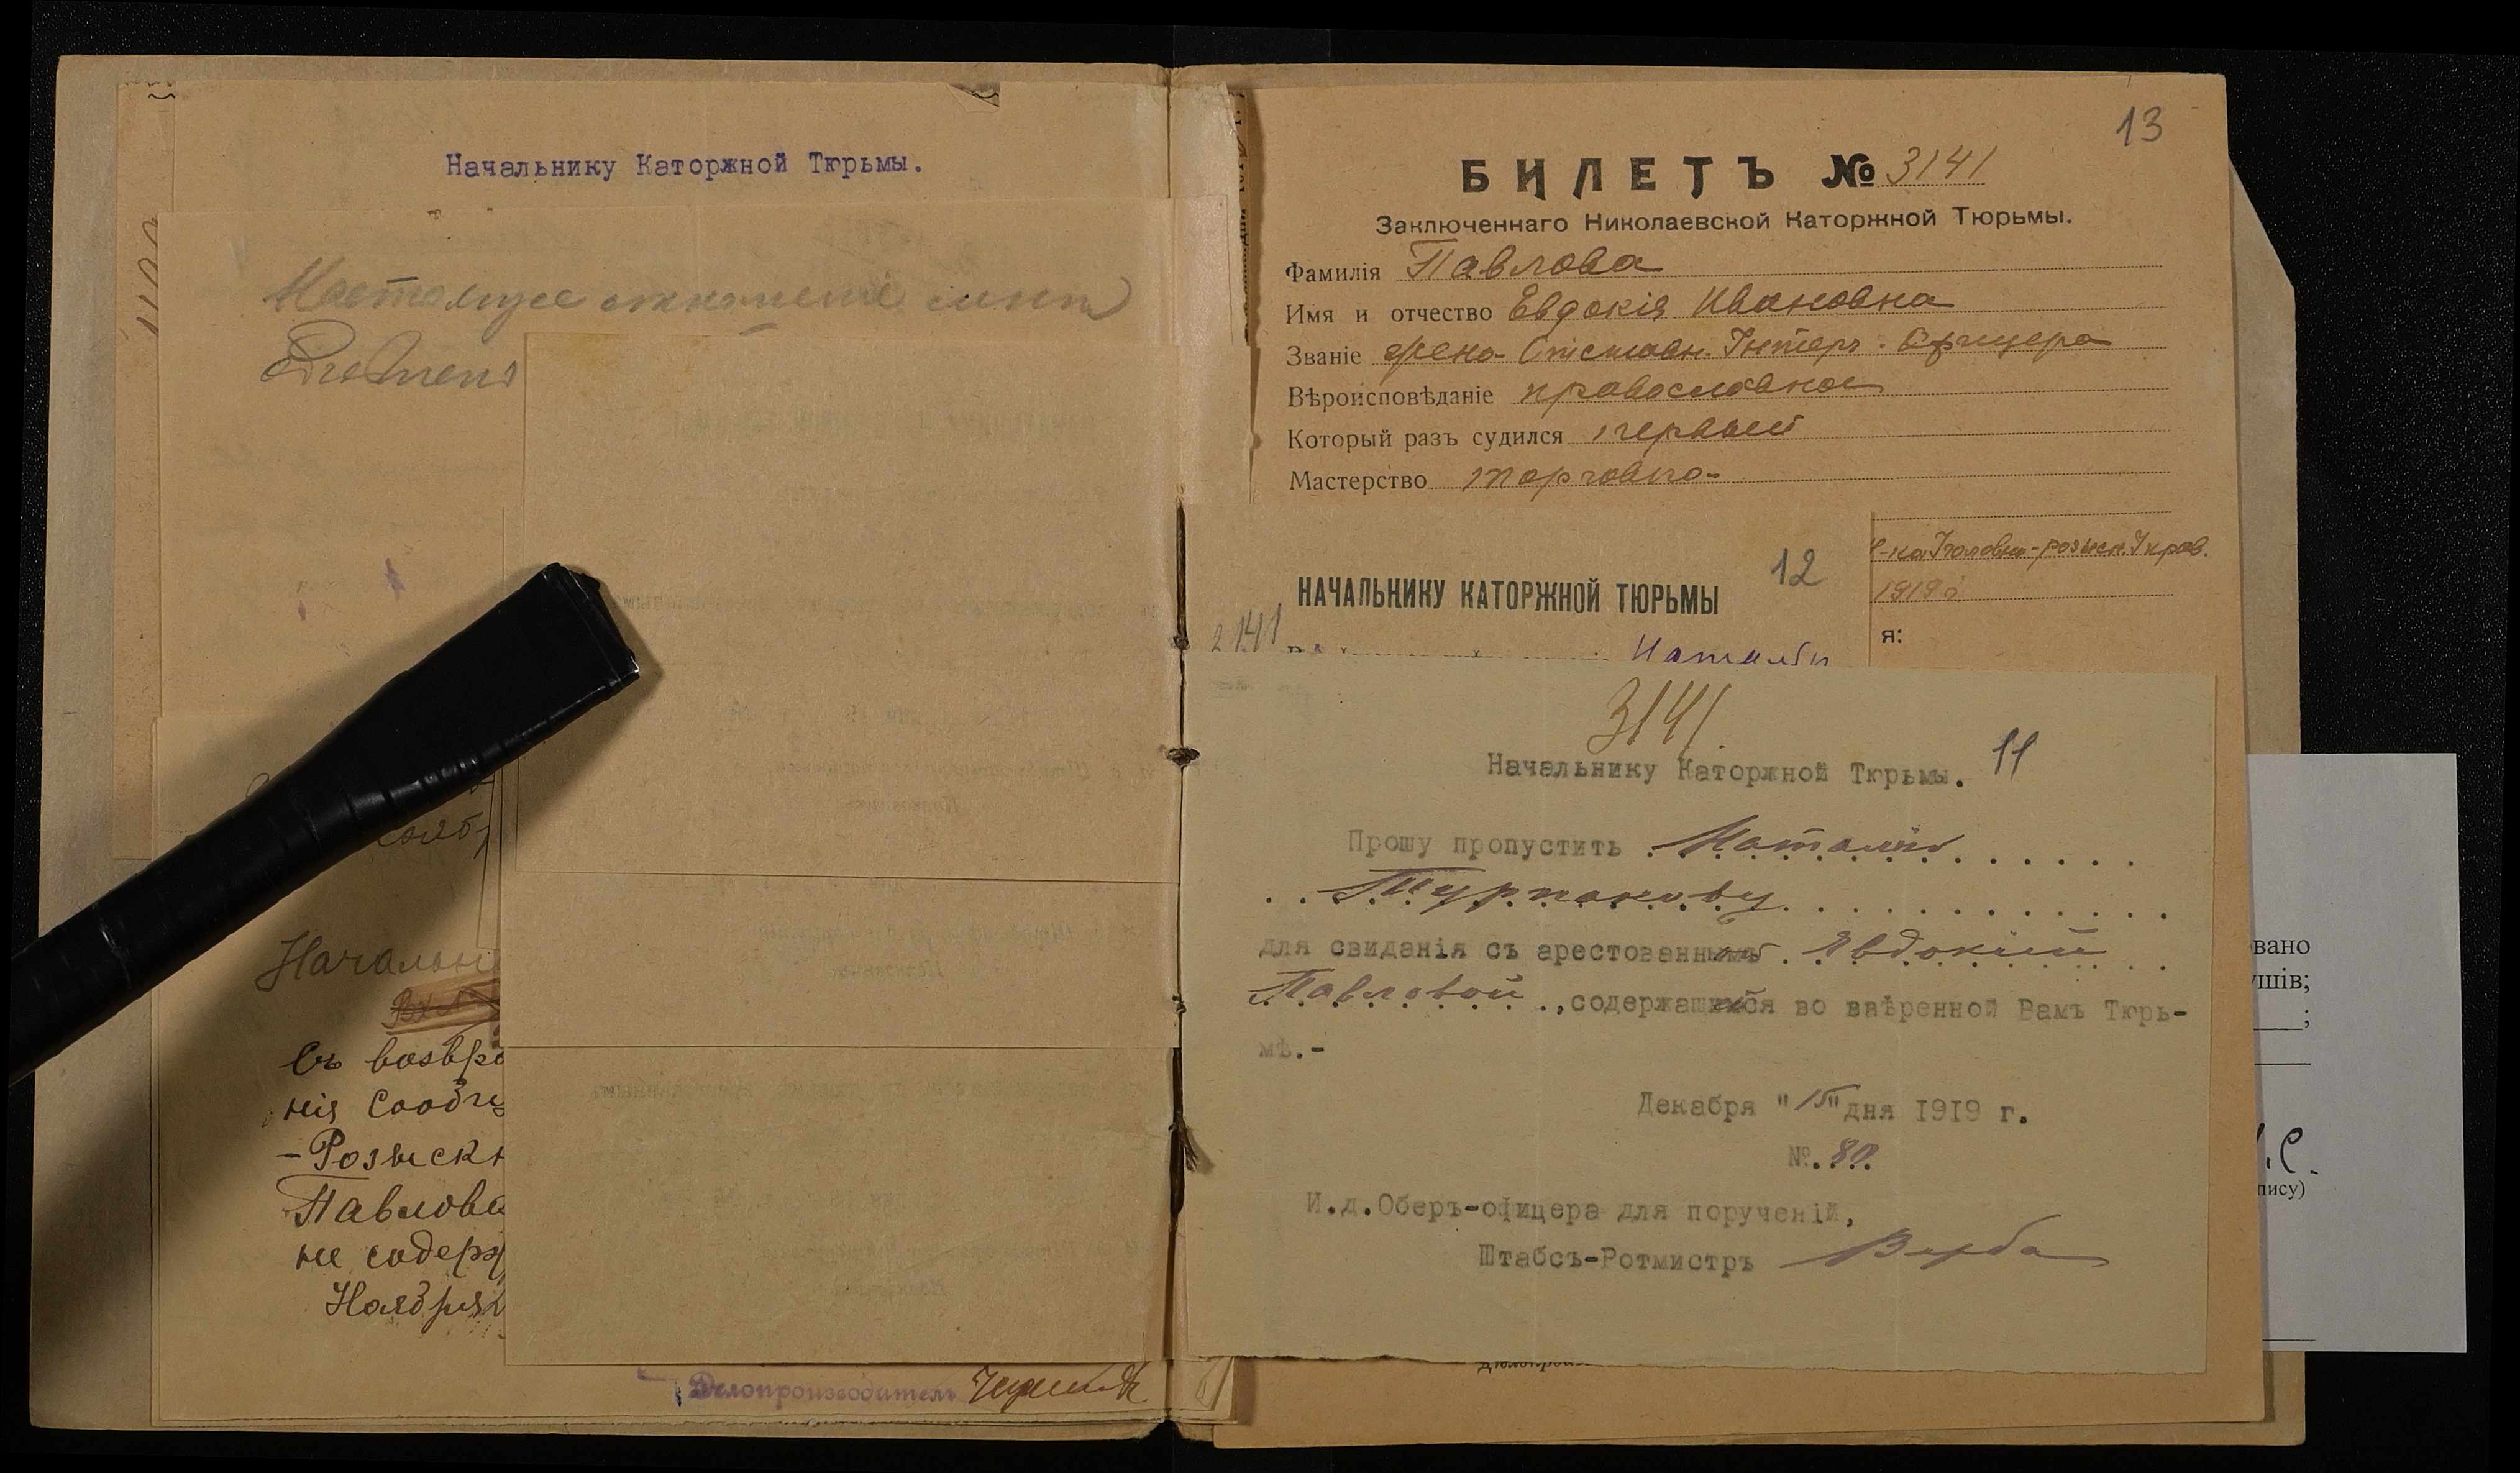 Начальнику Каторжной Тюрьмы.
Настоящее отношение
Началь
Съ возвра
нія сооб
-Розыскн
Павлова
не содерж
Ноября
Делопроизводитель
13
БИЛЕТЪ № 3141
Заключеннаго Николаевской Каторжной Тюрьмы.
Фамилія Павлова
Имя и отчество Евдокія Ивановна
Званіе жена Унтеръ-Офицера
Вѣроисповѣданіе православное
Который разъ судился первый
Мастерство торговка
розыск. Управ.
1919 г.
я:
12
НАЧАЛЬНИКУ КАТОРЖНОЙ ТЮРЬМЫ
2141
Наталіи
3141.
11
Начальнику Каторжной Тюрьмы.
Прошу пропустить Наталію
Турпакову
для свиданія съ арестованной Явдокіей
Павловой, содержащейся во ввѣренной Вамъ Тюрь-
мѣ.-
Декабря "15" дня 1919 г.
№.80.
И.д.Оберъ-офицера для порученій,
Штабсъ-Ротмистръ Верба
вано
ушів;
;
пису)